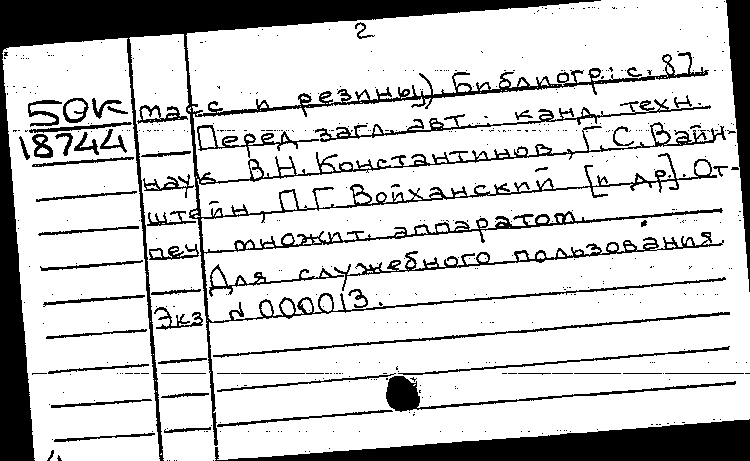 2
50К
18744
масс и резины). Библиогр.: с. 87.
Перед загл. авт.: канд. техн.
наук В.Н. Константинов, Г.С. Вайн-
штейн, П.Г. Войханский [и др]. От-
печ. множит. аппаратом.
Для служебного пользования.
Экз. № 000013.